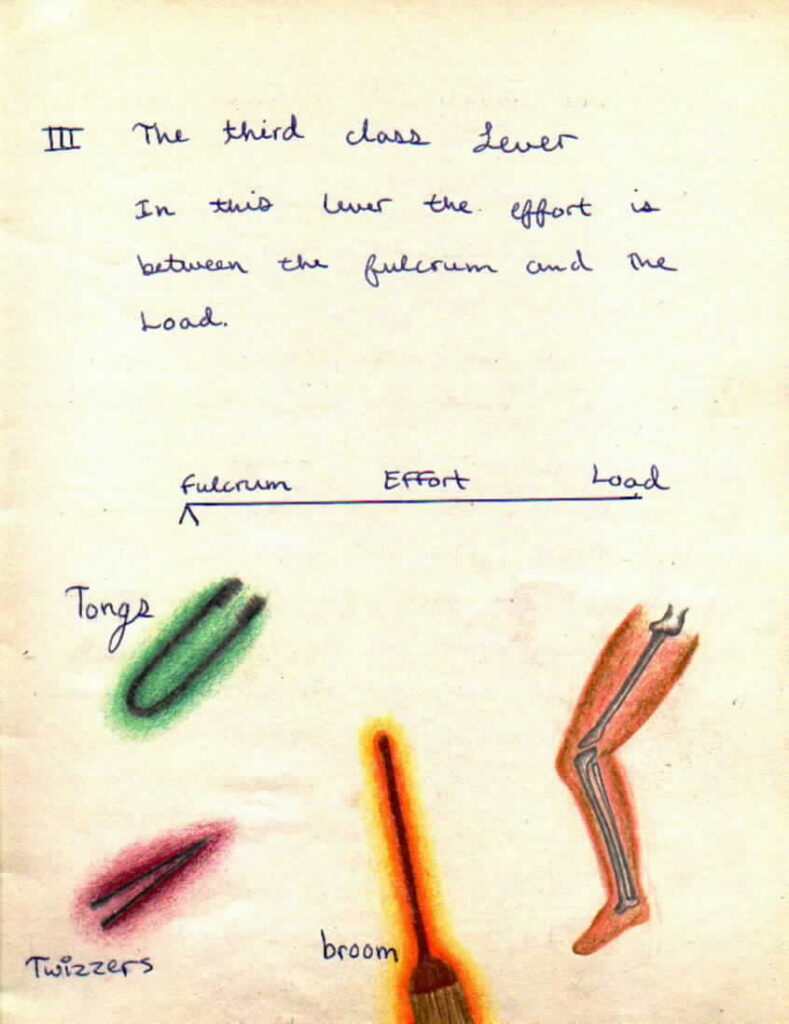 III The third class Lever
In this lever the effort is
between the fulcrum and the
Load.
Fulcrum Effort Load
Tongs
broom
Twizzers